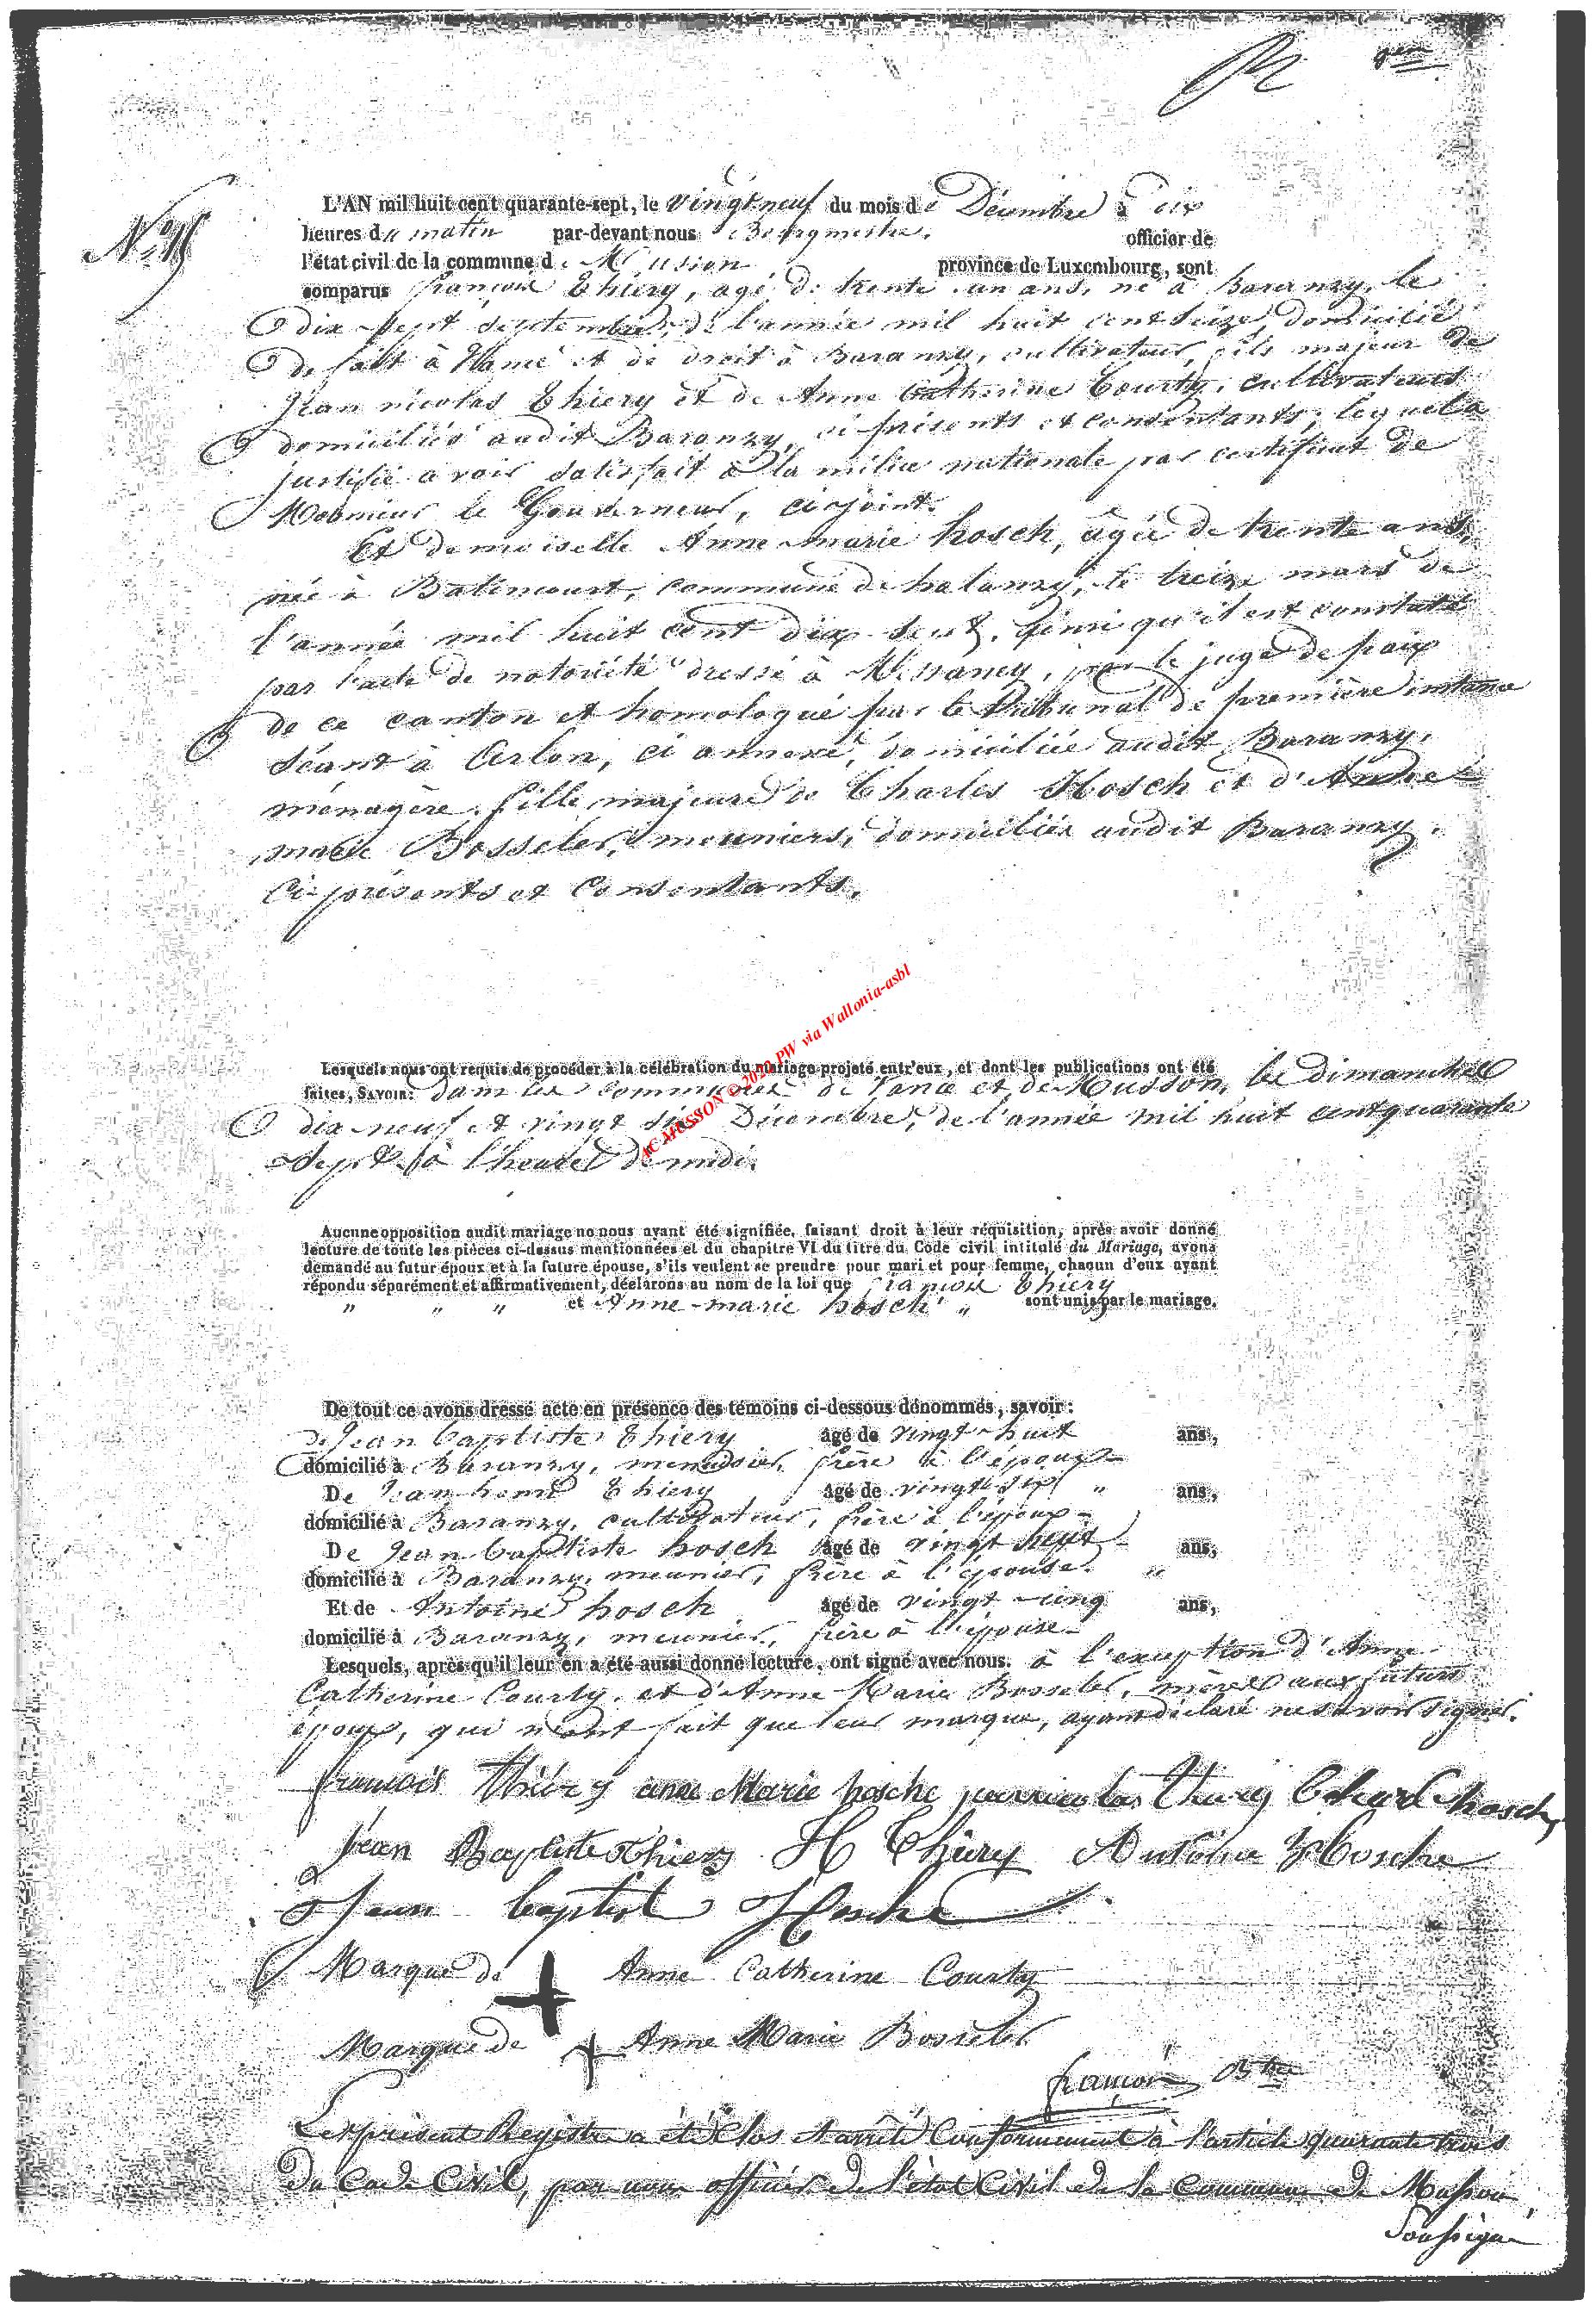 9em
N° 15
L'AN mil huit cent quarante-sept, le vingt neuf du mois de Décembre à dix
heures du matin par-devant nous Bourgmestre, officier de
l'état civil de la commune de Musson province de Luxembourg, sont
comparus françois Thiery, agé de trente un ans, né à Baranzy, le
dix-sept septembre, de l'année mil huit cent seize, domicilié
de fait à Vance et de droit à Baranzy, cultivateur, fils majeur de
Jean nicolas Thiery et de Anne Catherine Courty, cultivateurs
domiciliés audit Baranzy, ci-présents et consentants; lequel a
justifié avoir satisfait à la milice nationale par certificat de
Monsieur le Gouverneur, ci-joint.
Et demoiselle Anne-marie hosch, agée de trente ans,
née à Batincourt, commune de halanzy, le treize mars de
l'année mil huit cent dix-sept, ainsi qu'il est constaté
par l'acte de notoriété dressé à Messancy, par le juge de paix
de ce canton et homologué par le Tribunal de première instance
séant à Arlon, ci annexé, domiciliée audit Baranzy,
ménagère, fille majeure de Charles Hosch et d'Anne
marie Bosseler, meuniers, domiciliés audit Baranzy,
Ci-présents et Consentants.
Lesquels nous ont requis de procéder à la célébration du mariage projeté entr'eux, et dont les publications ont été
faites, SAVOIR: dans les communes de Vance et de Musson, les dimanches
dix-neuf et vingt six Décembre, de l'année mil huit cent quarante
sept, à l'heure de midi.
AC MUSSON © 2022 PW via Wallonia-asbl
Aucune opposition audit mariage ne nous ayant été signifiée, faisant droit à leur réquisition, après avoir donné
lecture de toute les pièces ci-dessus mentionnées et du chapitre VI du titre du Code civil intitulé du Mariage, avons
demandé au futur époux et à la future épouse, s'ils veulent se prendre pour mari et pour femme, chacun d'eux ayant
répondu séparément et affirmativement, déclarons au nom de la loi que françois Thiery
" " " et Anne-marie hosch " sont unis par le mariage.
De tout ce avons dressé acte en présence des témoins ci-dessous dénommés, savoir:
de Jean baptiste Thiery âgé de vingt-huit ans,
domicilié à Baranzy, menuisier, frère à l'époux
De Jean-henri Thiery âgé de vingt six " ans,
domicilié à Baranzy, cultivateur, frère à l'époux
De Jean baptiste hosch âgé de vingt sept ans,
domicilié à Baranzy, meunier, frère à l'épouse. "
Et de Antoine hosch âgé de vingt-cinq ans,
domicilié à Baranzy, meunier, frère à l'épouse
Lesquels, après qu'il leur en a été aussi donné lecture, ont signé avec nous. à l'exception d'Anne
Catherine Courty, et d'Anne Marie Bosseler, mères aux futurs
époux, qui n'ont fait que leur marque, ayant déclaré ne savoir signer.
françois Thiéry anne Marie hosche jean nicolas Thiery Charl hosch,
Jean Baptiste Thiery H Thiery Antoine Hosche
Jean baptist Hosche
Marque de + Anne Catherine Courty
Marque de + Anne Marie Bosseler
françois Btre
Le présent Registre a été Clos et arrêté Conformément à l'article quarante trois
du Code Civil, par nous officier de l'état Civil de la Commune de Musson,
Soussigné